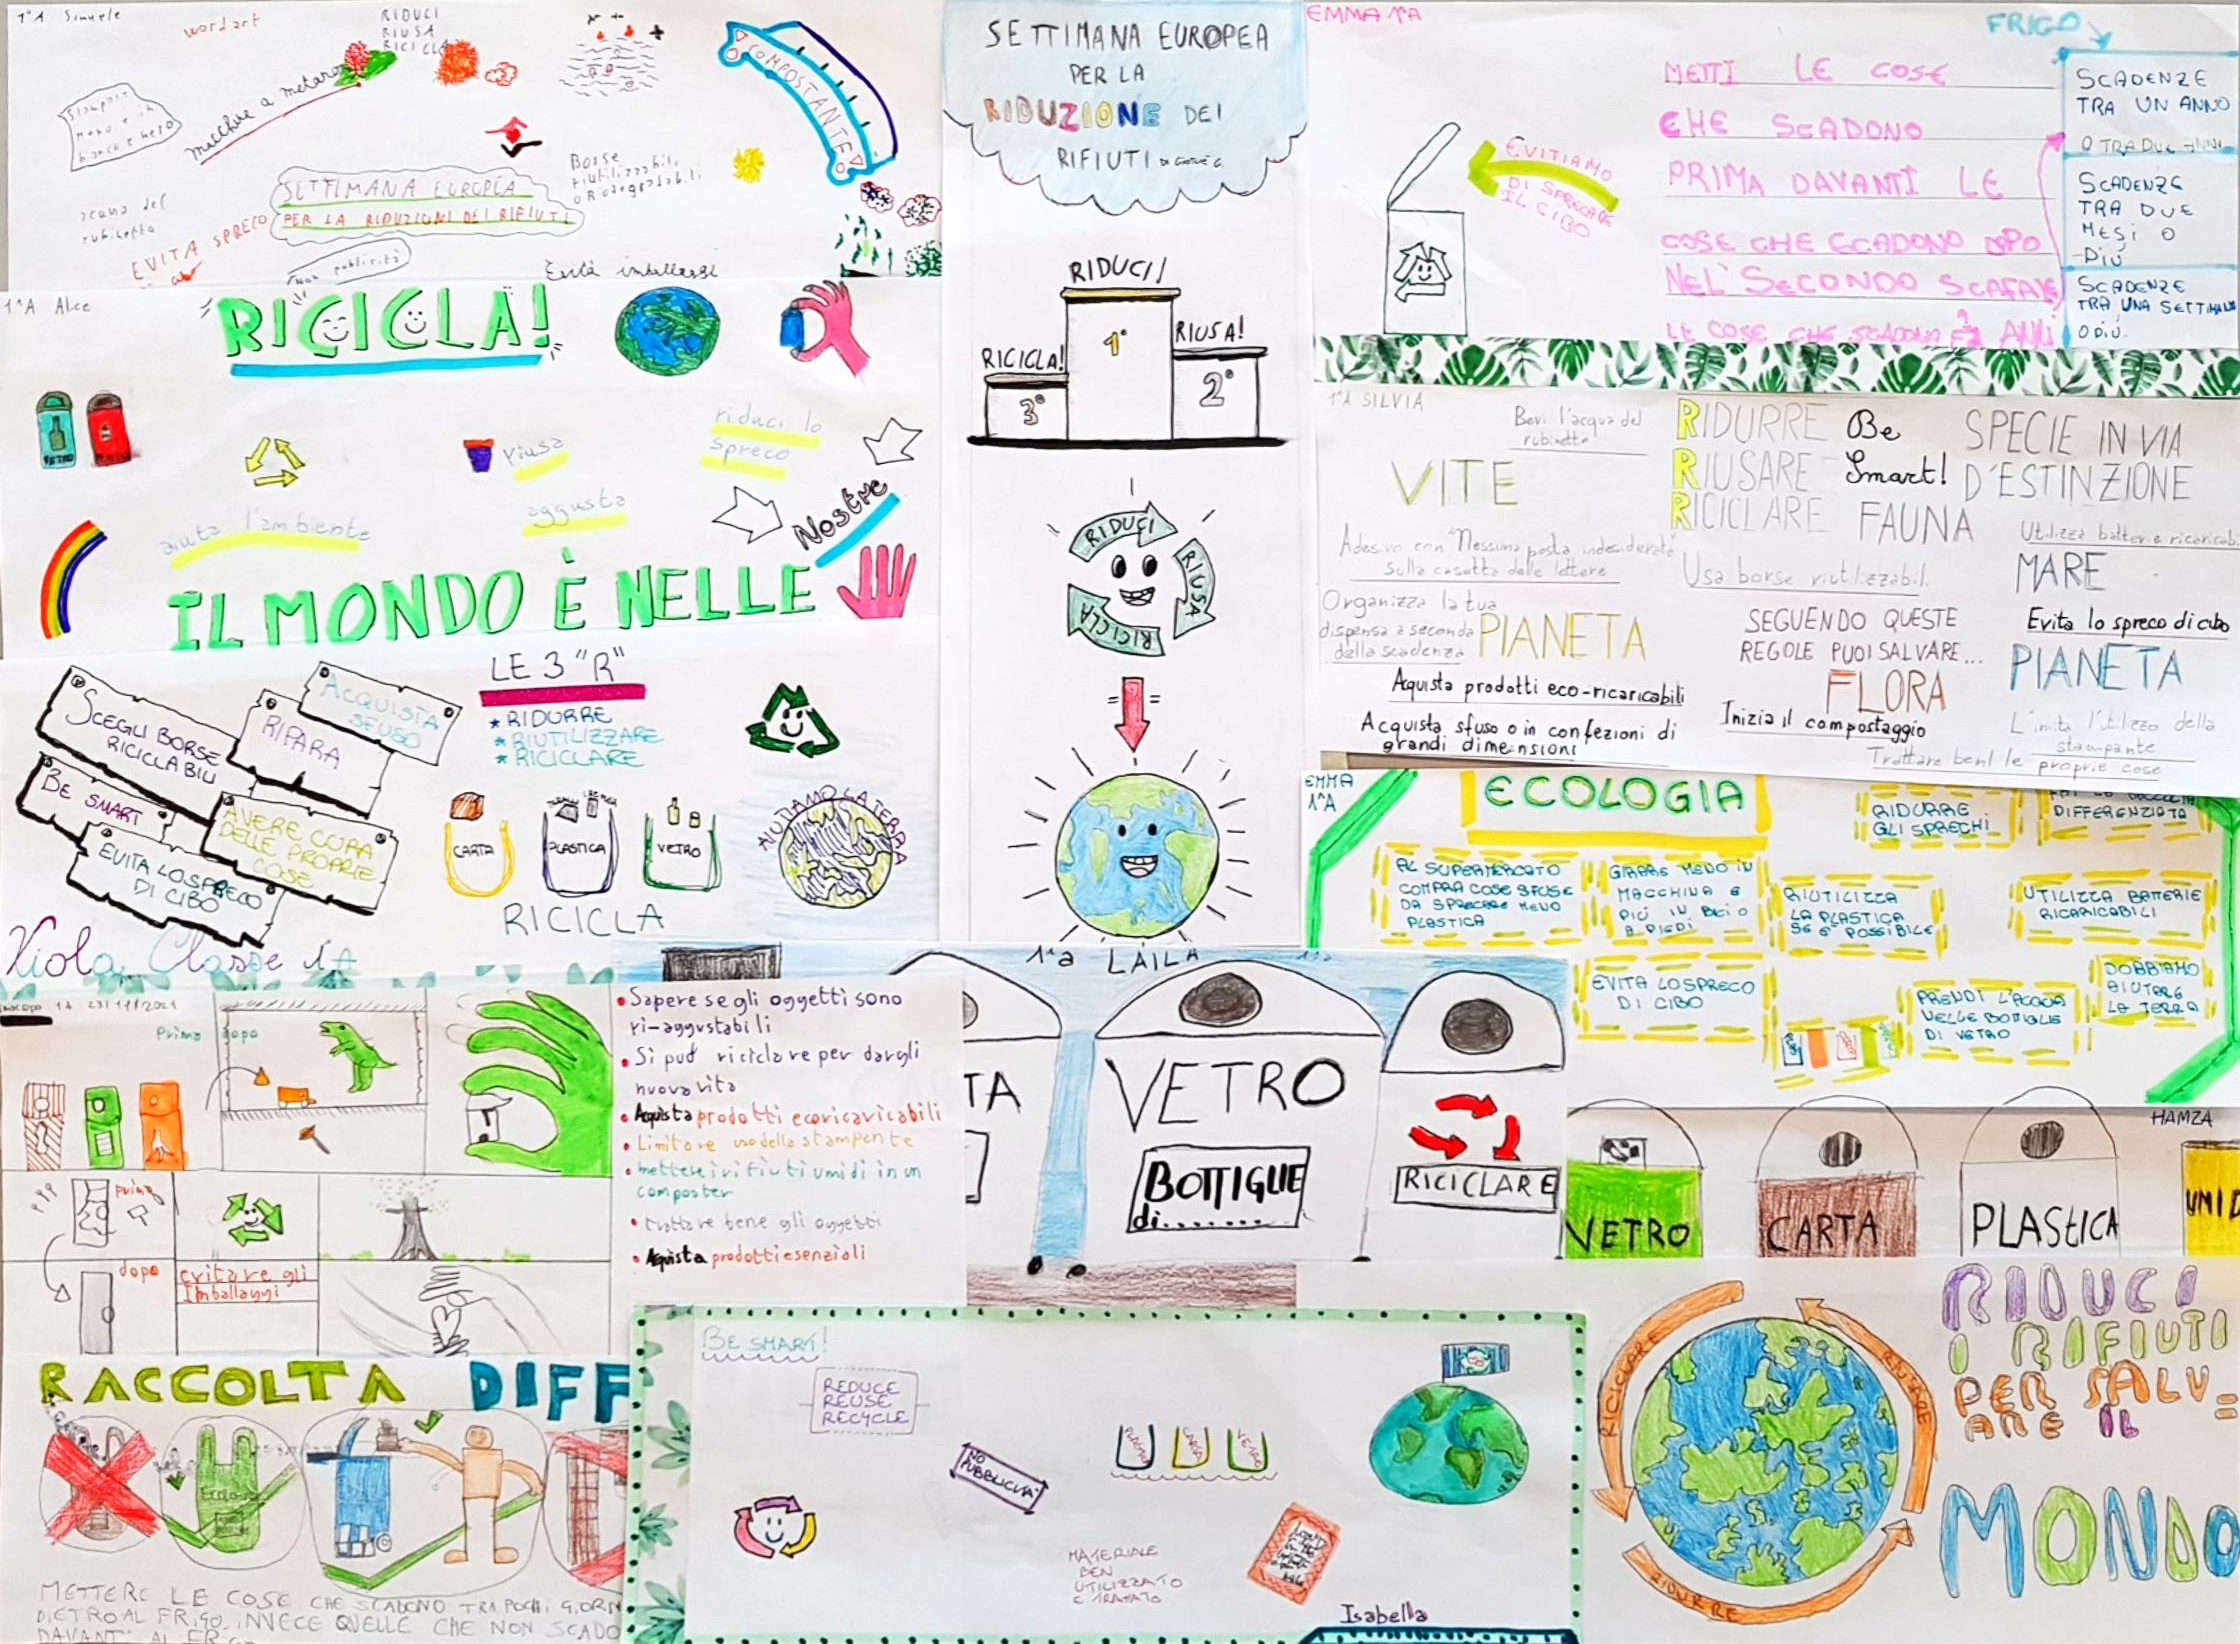 1^A Simuele
word art
RIDUCI
RIUSA
RICICLA
macchine a metano
COMPOSTANTE
SETTIMANA EUROPEA
PER LA RIDUZIONI DEI RIFIUTI
Borse
riutilizzabili
o Biodegradabili
acqua del
rubinetto
EVITA SPRECO
Non publicità
Evità imballaggi
1^A Alice
RICICLA!
VETRO
riusa
riduci lo
spreco
aiuta l'ambiente
aggusta
IL MONDO È NELLE
Nostre
SCEGLI BORSE
RICICLABILI
RIPARA
ACQUISTA
SFUSO
BE SMART
AVERE CURA
DELLE PROPRIE
COSE
EVITA LO SPRECO
DI CIBO
LE 3 "R"
* RIDURRE
* RIUTILIZZARE
* RICICLARE
CARTA
PLASTICA
VETRO
RICICLA
AIUTIAMO LA TERRA
Viola Classe 1^A
SETTIMANA EUROPEA
PER LA
RIDUZIONE DEI
RIFIUTI
RIDUCI!
1°
RIUSA!
2°
RICICLA!
3°
RIDUCI
RIUSA
RICICLA
EMMA 1^A
FRIGO
EVITIAMO
DI SPRECARE
IL CIBO
METTI LE COSE
CHE SCADONO
PRIMA DAVANTI LE
COSE CHE SCADONO DOPO
NEL' SECONDO
LE COSE CHE
SCADENZE
TRA UN ANNO
O TRA DUE ANNI
SCADENZE
TRA DUE
MESI O
PIÙ
SCADENZE
TRA UNA SETTIMANA
O PIÙ.
1^A SILVIA
Bevi l'acqua del
rubinetto
VITE
RIDURRE
RIUSARE
RICICLARE
Be
Smart!
SPECIE IN VIA
D'ESTINZIONE
FAUNA
Adesivo con "Nessuna posta indesiderata"
sulla casetta delle lettere
Usa borse riutilizzabili.
Utilizza batterie ricaricabi
MARE
Organizza la tua
dispensa a seconda
della scadenza
PIANETA
SEGUENDO QUESTE
REGOLE PUOI SALVARE...
FLORA
Evita lo spreco di cibo
PIANETA
Aquista prodotti eco-ricaricabili
Inizia il compostaggio
Acquista sfuso o in confezioni di
grandi dimensioni
Limita l'utilizzo della
stampante
Trattare bene le proprie cose
EMMA
1^A
ECOLOGIA
RIDURRE
GLI SPRECHI
DIFFERENZIATA
AL SUPERMERCATO
COMPRA COSE SFUSE
DA SPRECARE MENO
PLASTICA
GIRARE MENO IN
MACCHINA E
PIÙ IN BICI O
A PIEDI
RIUTILIZZA
LA PLASTICA
SE E' POSSIBILE
UTILIZZA BATTERIE
RICARICABILI
EVITA LO SPRECO
DI CIBO
PRENDI L'ACQUA
NELLE BOTTIGLIE
DI VETRO
DOBBIAMO
AIUTARE
LA TERRA
1A 23/11/2021
Prima
dopo
prima
dopo
evitare gli
Imballaggi
• Sapere se gli oggetti sono
ri-aggustabili
• Si può riciclare per dargli
nuova vita
• Aquista prodotti ecoricaricabili
• Limitare uso della stampente
• mettere i rifiuti umidi in un
composter
• trattare bene gli oggetti
• Aquista prodotti esenziali
1^a LAILA
TA
VETRO
BOTTIGLIE
di.........
RICICLARE
HAMZA
VETRO
CARTA
PLASTICA
UMID
RACCOLTA DIFF
METTERE LE COSE CHE SCADONO TRA POCHI GIORN
DIETRO AL FRIGO, INVECE QUELLE CHE NON SCADO
DAVANTI AL FRIGO
BE SMART!
REDUCE
REUSE
RECYCLE
NO
PUBBLICITA'
PLASTICA
CARTA
VETRO
MATERIALE
BEN
UTILIZZATO
E TRATATO
Isabella
RICICLARE
RIUSARE
RIDURRE
RIDUCI
I RIFIUTI
PER SALV=
ARE IL
MONDO